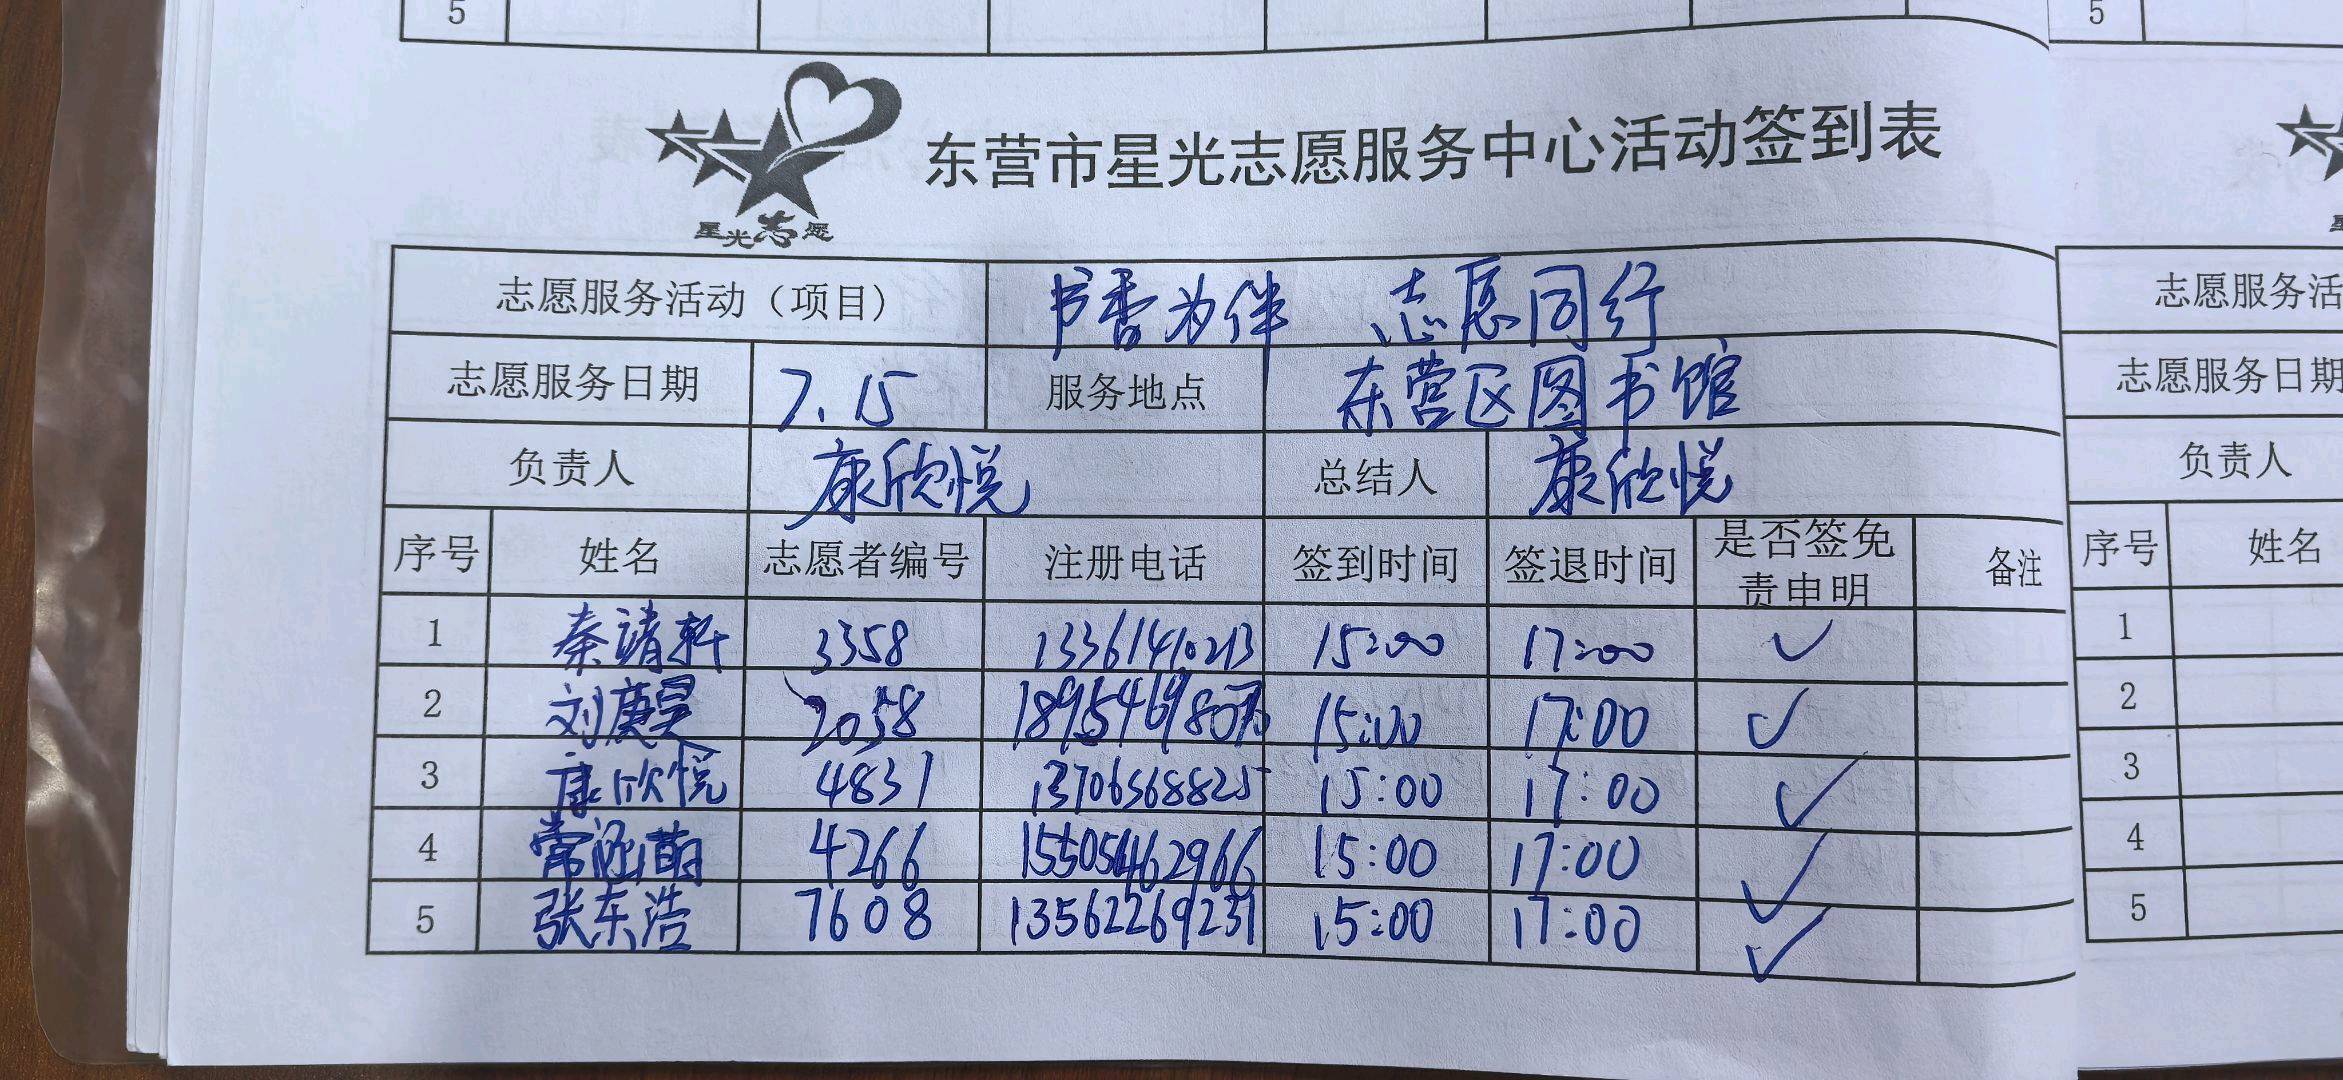 5
5
东营市星光志愿服务中心活动签到表
星光志愿
志愿服务活动（项目） 书香为伴 志愿同行
志愿服务日期 7.15 服务地点 东营区图书馆
负责人 康欣悦 总结人 康欣悦
序号 姓名 志愿者编号 注册电话 签到时间 签退时间 是否签免责申明 备注
1 秦靖轩 3358 13361410213 15:00 17:00 ✓
2 刘庚昊 2058 15:00 17:00 ✓
3 康欣悦 4831 13706368825 15:00 17:00 ✓
4 4266 15505462966 15:00 17:00 ✓
5 张东浩 7608 13562269231 15:00 17:00 ✓
志愿服务活
志愿服务日期
负责人
序号 姓名
1
2
3
4
5